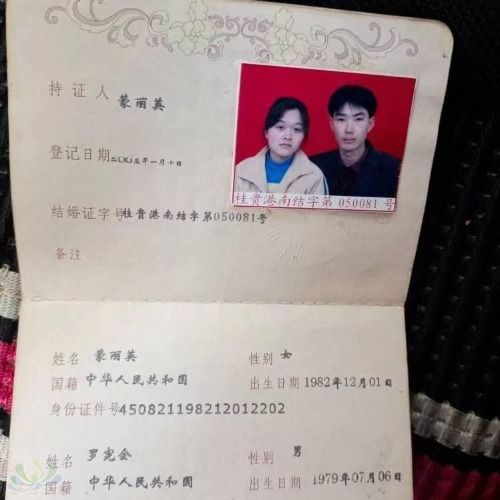 持证人 蒙丽英
登记日期 二〇〇五年一月十日
桂贵港南结字第 050081 号
结婚证字号 桂贵港南结字第050081号
备注
姓名 蒙丽英 性别 女
国籍 中华人民共和国 出生日期 1982年12月01日
身份证件号 450821198212012202
姓名 罗宪会 性别 男
国籍 中华人民共和国 出生日期 1979年07月06日